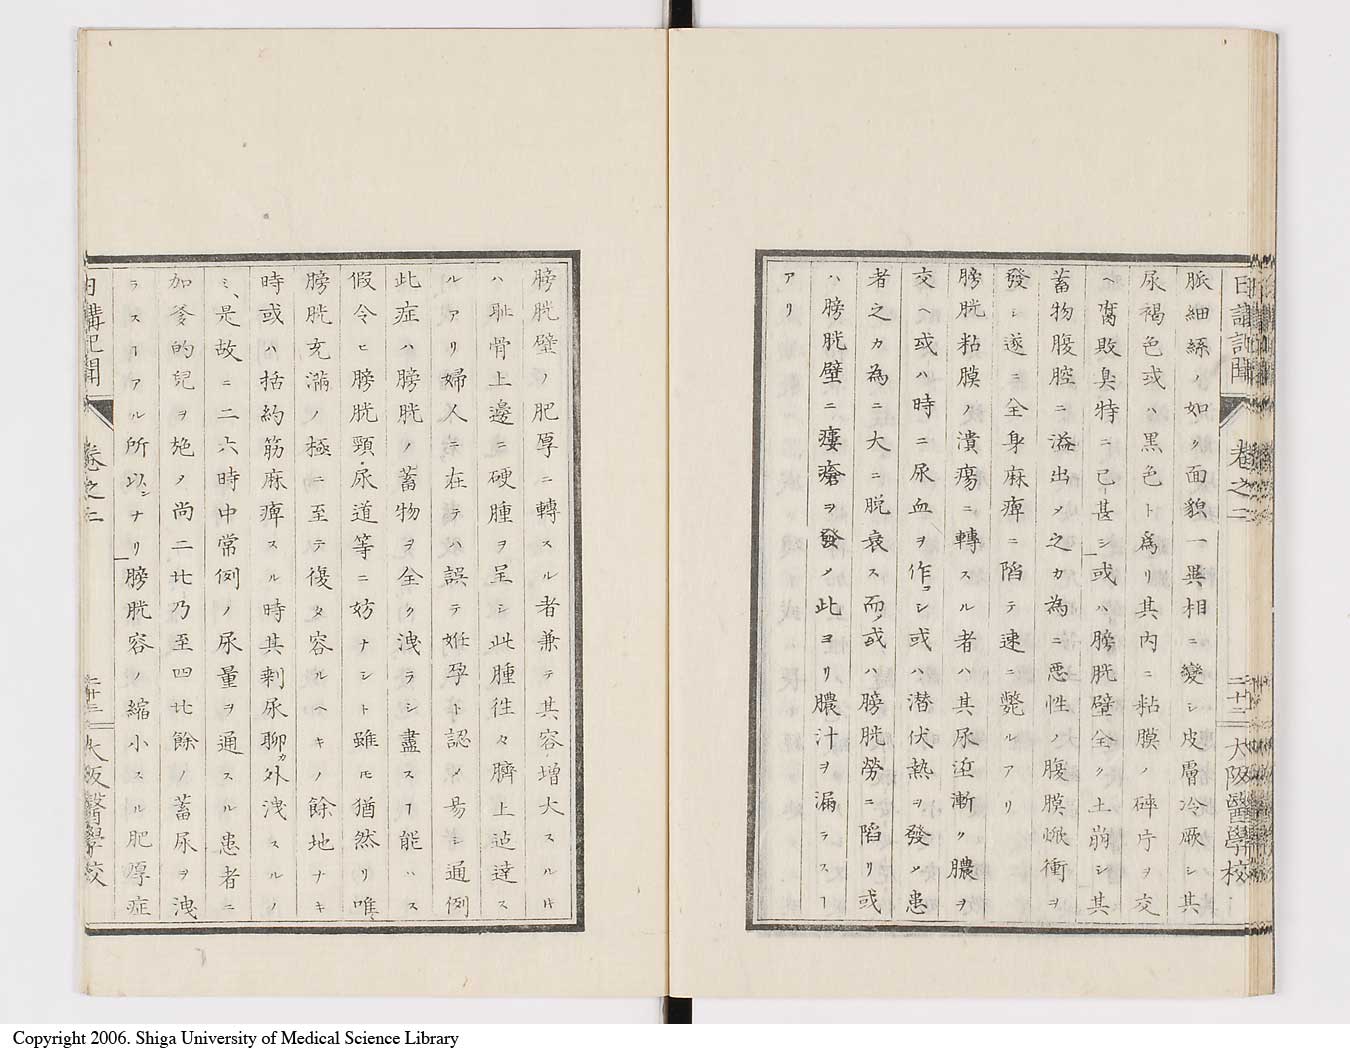 日講記聞 卷之二 二十二 大阪醫學校
脈細絲ノ如ク面貌一異相ニ變シ皮膚冷厥シ其
尿褐色或ハ黒色ト爲リ其內ニ粘膜ノ碎片ヲ交
ヘ腐敗臭特ニ己甚シ或ハ膀胱壁全ク土崩シ其
蓄物腹腔ニ溢出メ之カ為ニ悪性ノ腹膜焮衝ヲ
發シ遂ニ全身麻痺ニ陷テ速ニ斃ルアリ
膀胱粘膜ノ潰瘍ニ轉スル者ハ其尿逗漸ク膿ヲ
交ヘ或ハ時ニ尿血ヲ作シ或ハ潜伏熱ヲ發メ患
者之カ為ニ大ニ脱衰ス而或ハ膀胱勞ニ陷リ或
ハ膀胱壁ニ瘻瘡ヲ發メ此ヨリ膿汁ヲ漏ラスヿ
アリ
膀胱壁ノ肥厚ニ轉スル者兼テ其容增大スルキ
ハ耻骨上邊ニ硬腫ヲ呈シ此腫往々臍上迠達ス
ルアリ婦人ニ在テハ誤テ姙孕ト認メ易シ通例
此症ハ膀胱ノ蓄物ヲ全ク洩ラシ盡スヿ能ハス
假令ヒ膀胱頸尿道等ニ妨ナシト雖モ猶然リ唯
膀胱充滿ノ極ニ至テ復タ容ルヘキノ餘地ナキ
時或ハ括約筋麻痺スル時其剰尿聊カ外洩スルノ
ミ是故ニ二六時中常例ノ尿量ヲ通スル患者ニ
加爹的兒ヲ施メ尚二㐂乃至四㐂餘ノ蓄尿ヲ洩
ラスヿアル所以ンナリ膀胱容ノ縮小スル肥厚症
日講記聞 卷之二 二十二 大阪醫學校
Copyright 2006. Shiga University of Medical Science Library